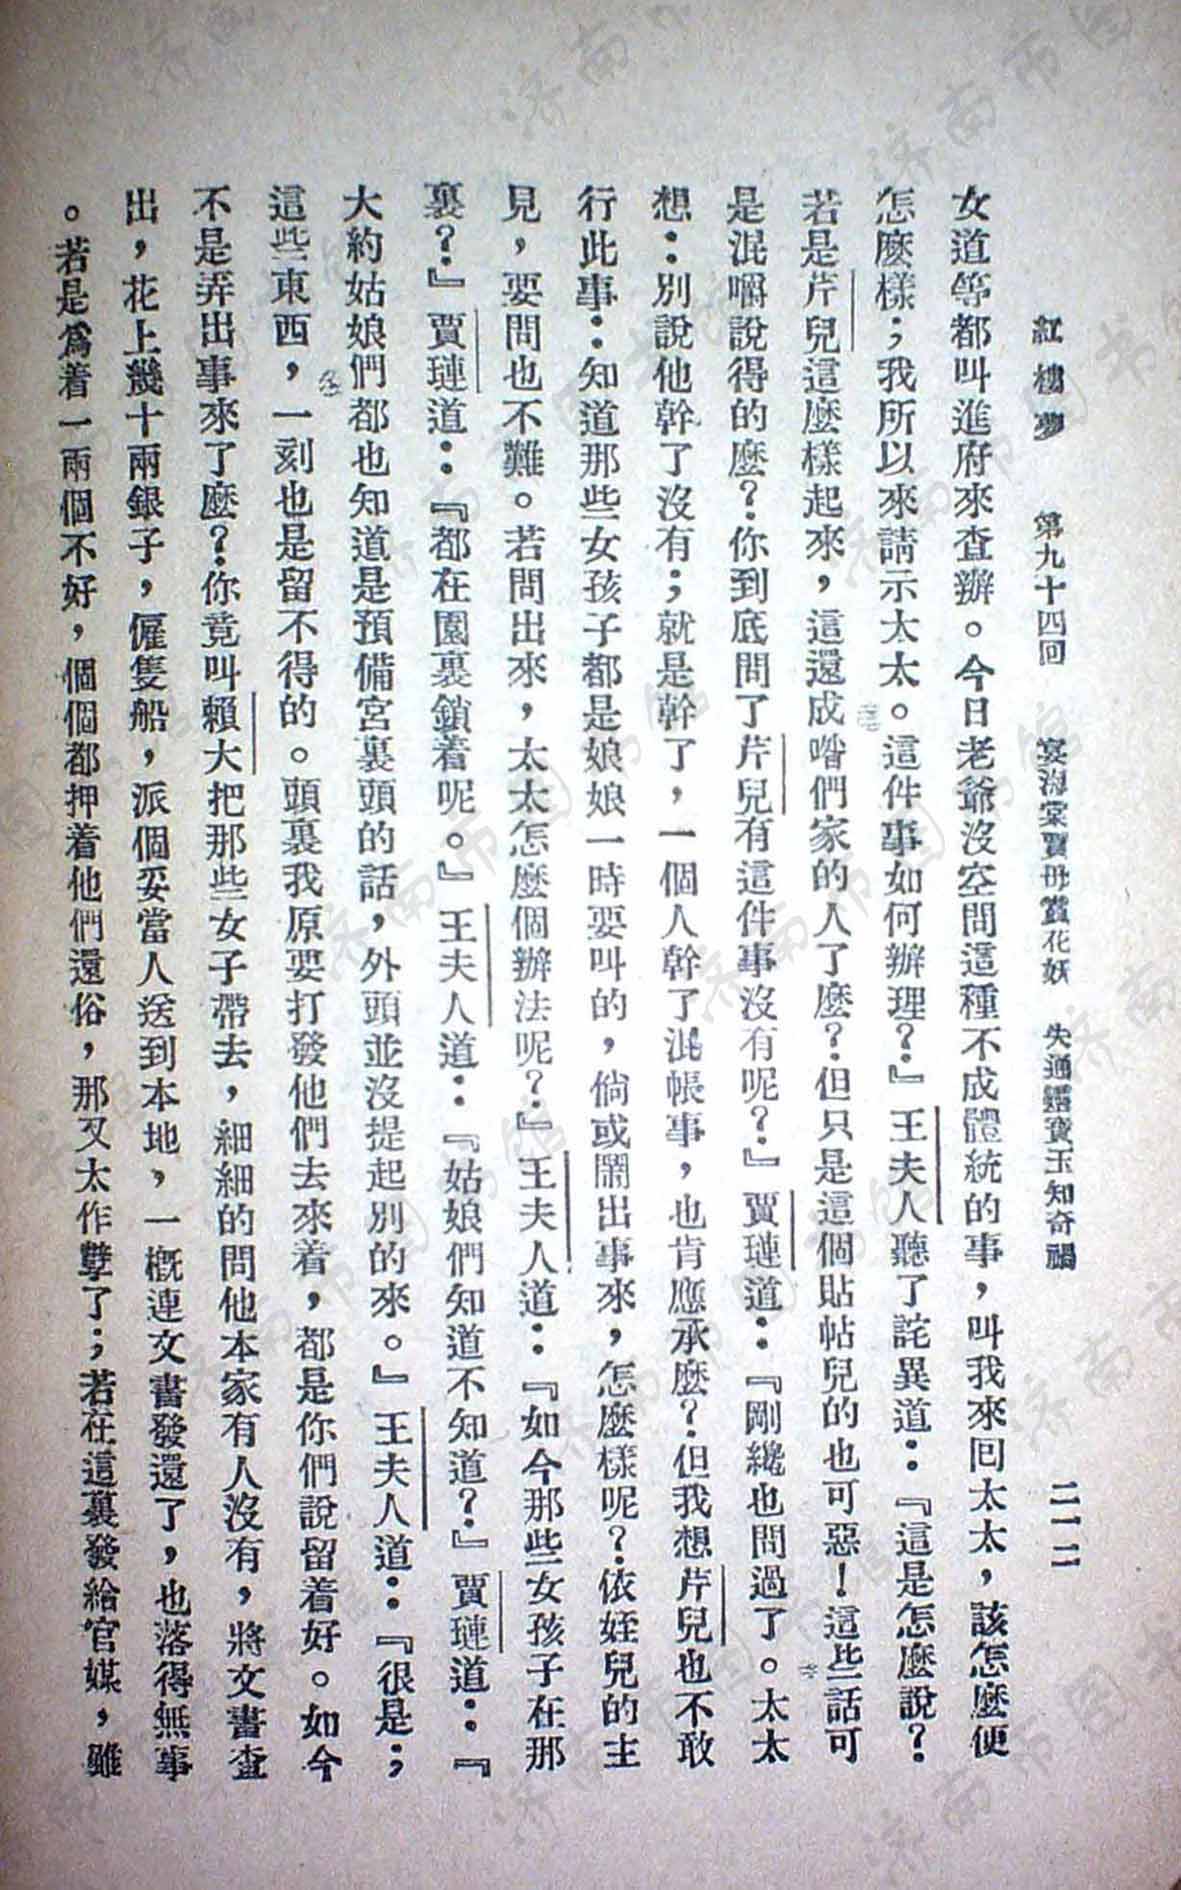 紅樓夢 第九十四回 宴海棠賈母賞花妖 失通靈寶玉知奇禍 二一二
女道等都叫進府來查辦。今日老爺沒空問這種不成體統的事，叫我來回太太，該怎麼便
怎麼樣；我所以來請示太太。這件事如何辦理？』王夫人聽了詫異道：『這是怎麼說？
若是芹兒這麼樣起來，這還成喒們家的人了麼？但只是這個貼帖兒的也可惡！這些話可
是混嚼說得的麼？你到底問了芹兒有這件事沒有呢？』賈璉道：『剛纔也問過了。太太
想：別說他幹了沒有；就是幹了，一個人幹了混帳事，也肯應承麼？但我想芹兒也不敢
行此事：知道那些女孩子都是娘娘一時要叫的，倘或鬧出事來，怎麼樣呢？依姪兒的主
見，要問也不難。若問出來，太太怎麼個辦法呢？』王夫人道：『如今那些女孩子在那
裏？』賈璉道：『都在園裏鎖着呢。』王夫人道：『姑娘們知道不知道？』賈璉道：『
大約姑娘們都也知道是預備宮裏頭的話，外頭並沒提起別的來。』王夫人道：『很是；
這些東西，一刻也是留不得的。頭裏我原要打發他們去來着，都是你們說留着好。如今
不是弄出事來了麼？你竟叫賴大把那些女子帶去，細細的問他本家有人沒有，將文書查
出，花上幾十兩銀子，僱隻船，派個妥當人送到本地，一概連文書發還了，也落得無事
。若是爲着一兩個不好，個個都押着他們還俗，那又太作孽了；若在這裏發給官媒，雖